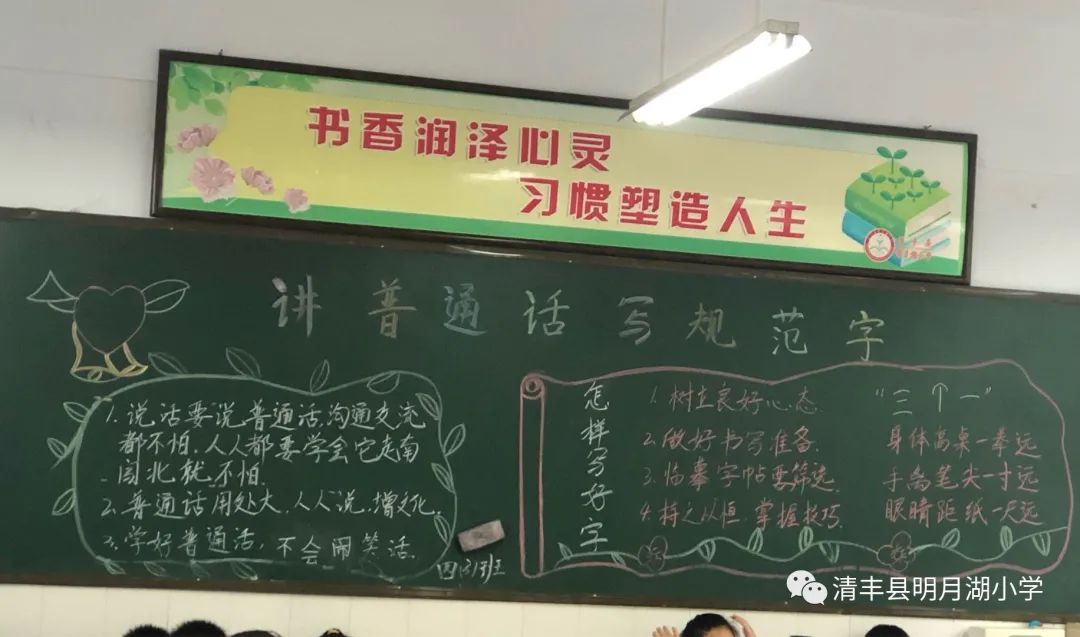 书香润泽心灵
习惯塑造人生
讲普通话写规范字
1.说话要说普通话,沟通交流
都不怕.人人都要学会它走南
闯北就不怕.
2.普通话用处大.人人说.增文化.
3.学好普通话,不会闹笑话.
班
怎样写好字
1.树立良好心态.
2.做好书写准备.
3.临摹字帖要筛选.
4.持之以恒.掌握技巧.
“三个一”
身体离桌一拳远
手离笔尖一寸远
眼睛距纸一尺远
清丰县明月湖小学